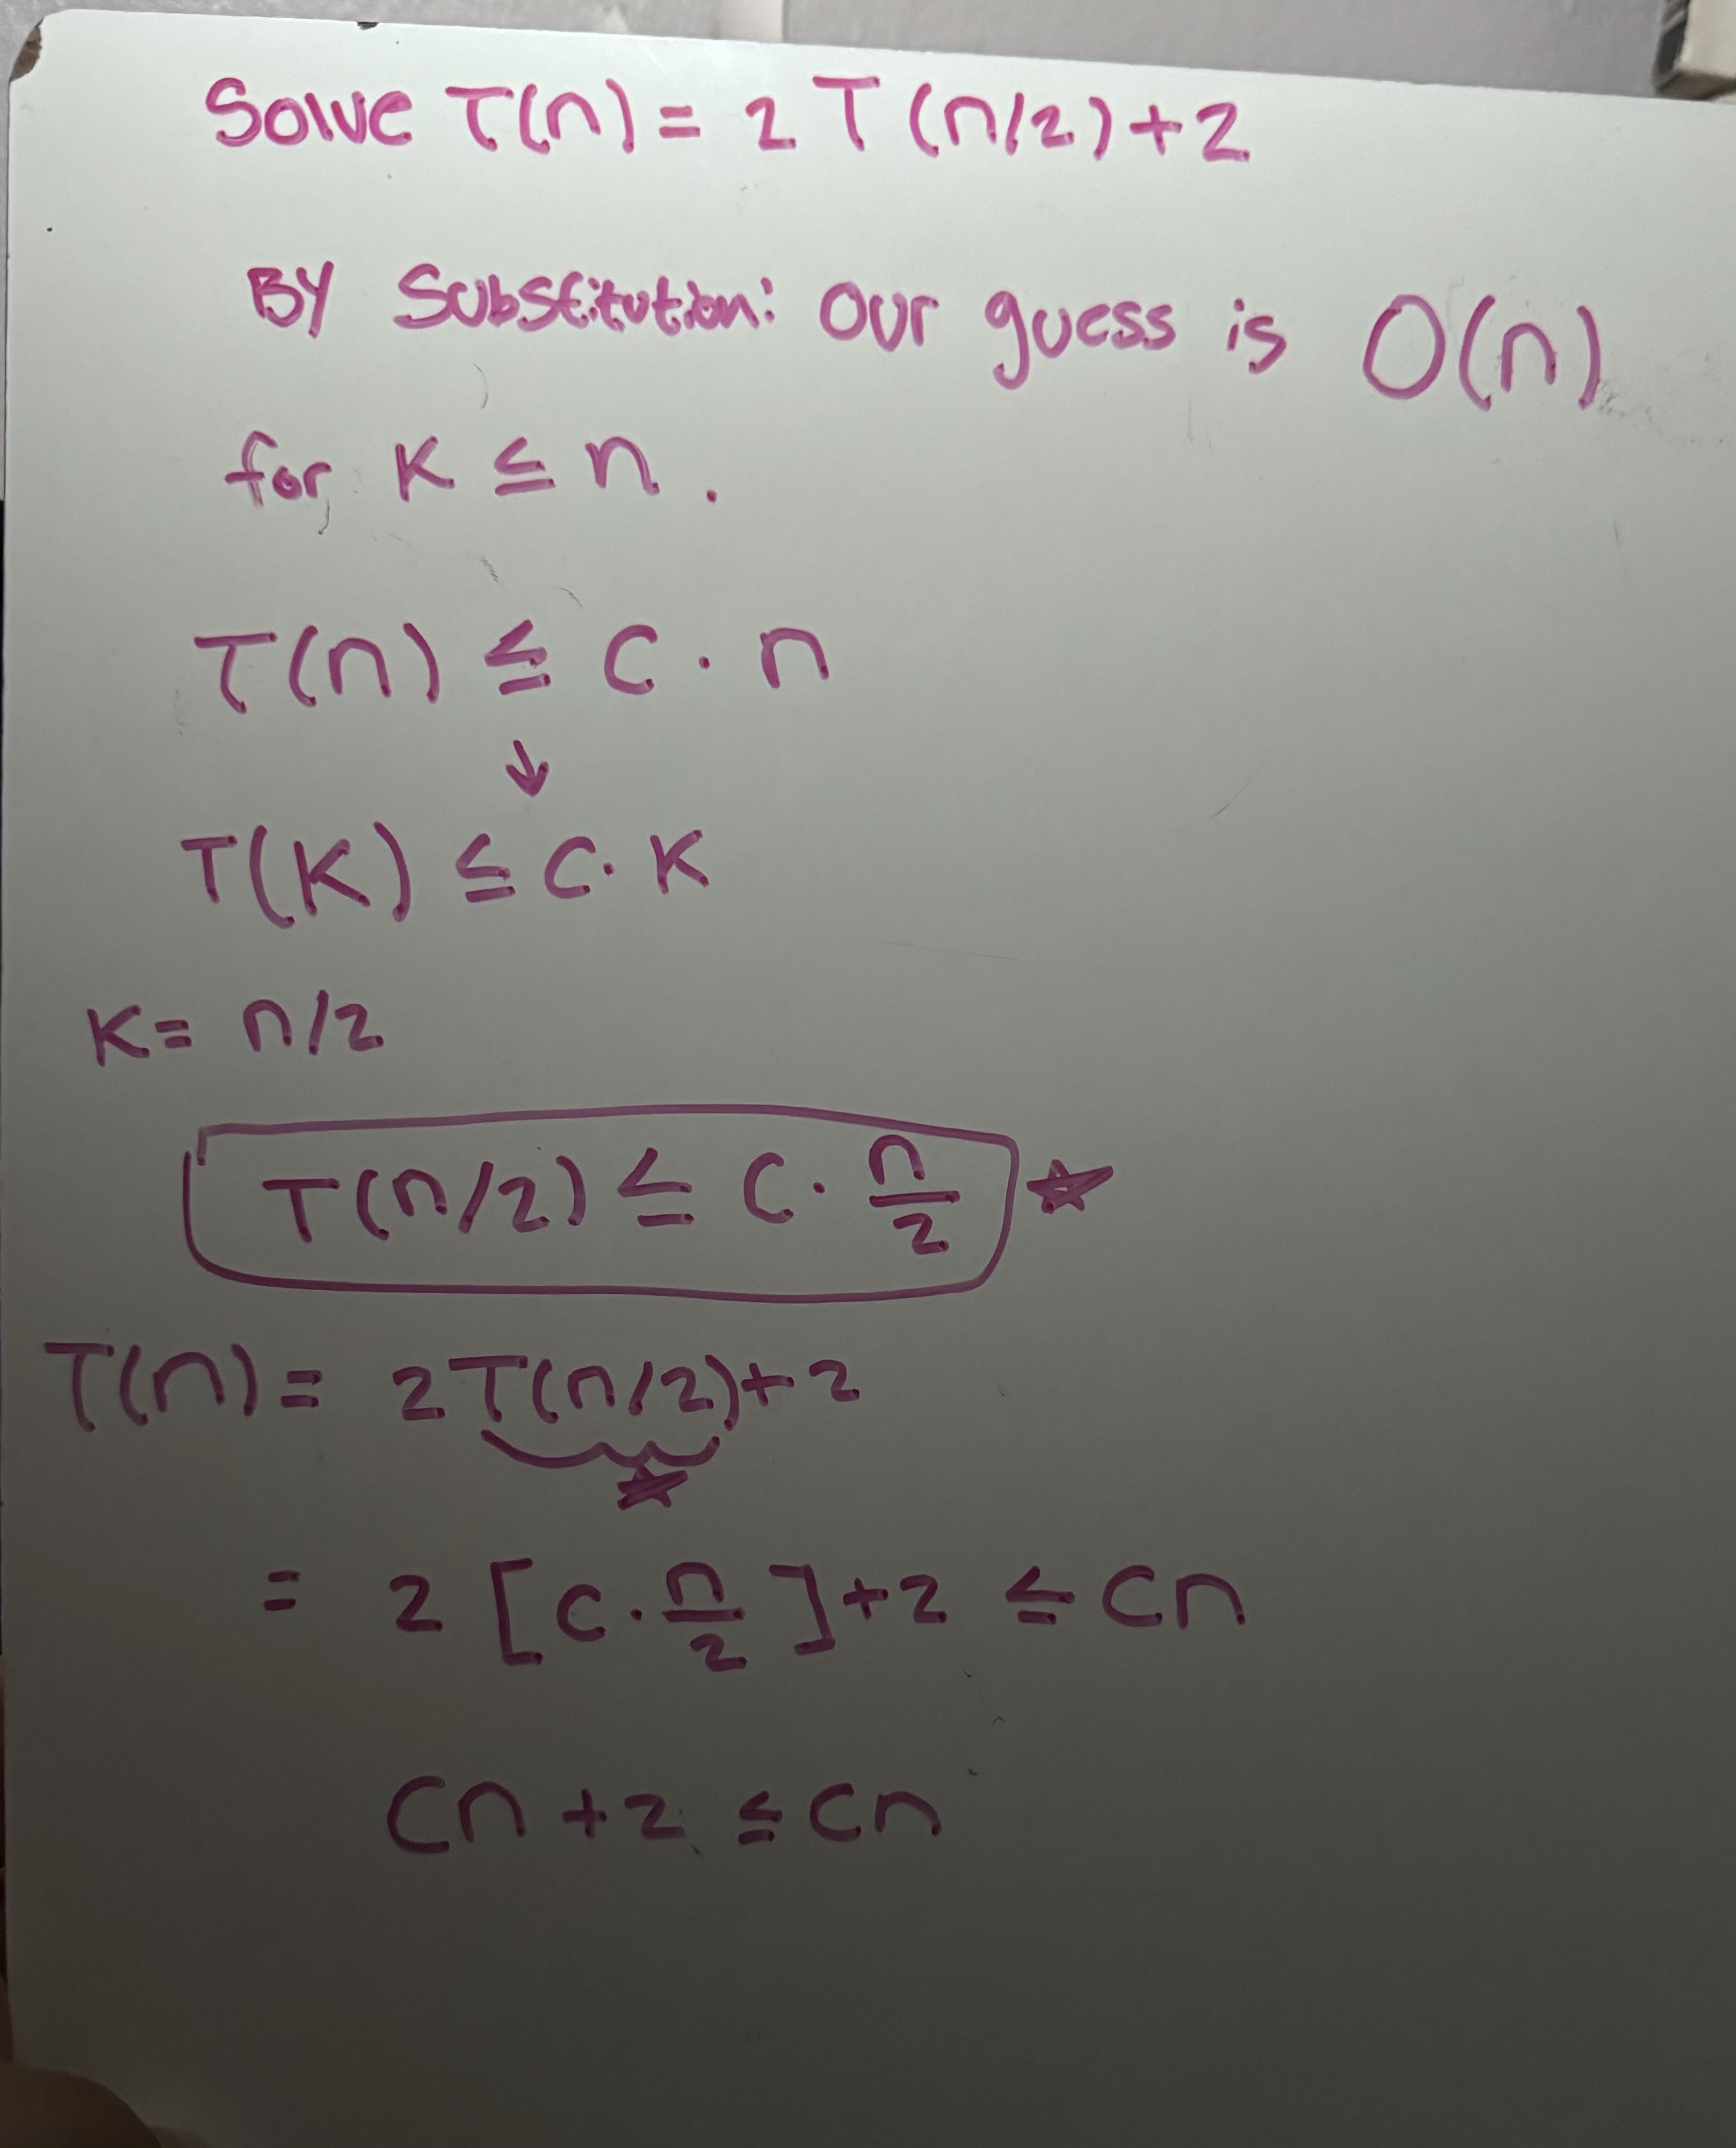 Solve T(n) = 2T(n/2)+2
By Substitution: Our guess is O(n)
for K ≤ n.
T(n) ≤ C · n
↓
T(K) ≤ C · K
K = n/2
T(n/2) ≤ C · n/2 ★
T(n) = 2T(n/2)+2
★
= 2 [C · n/2] +2 ≤ Cn
Cn +2 ≤ Cn